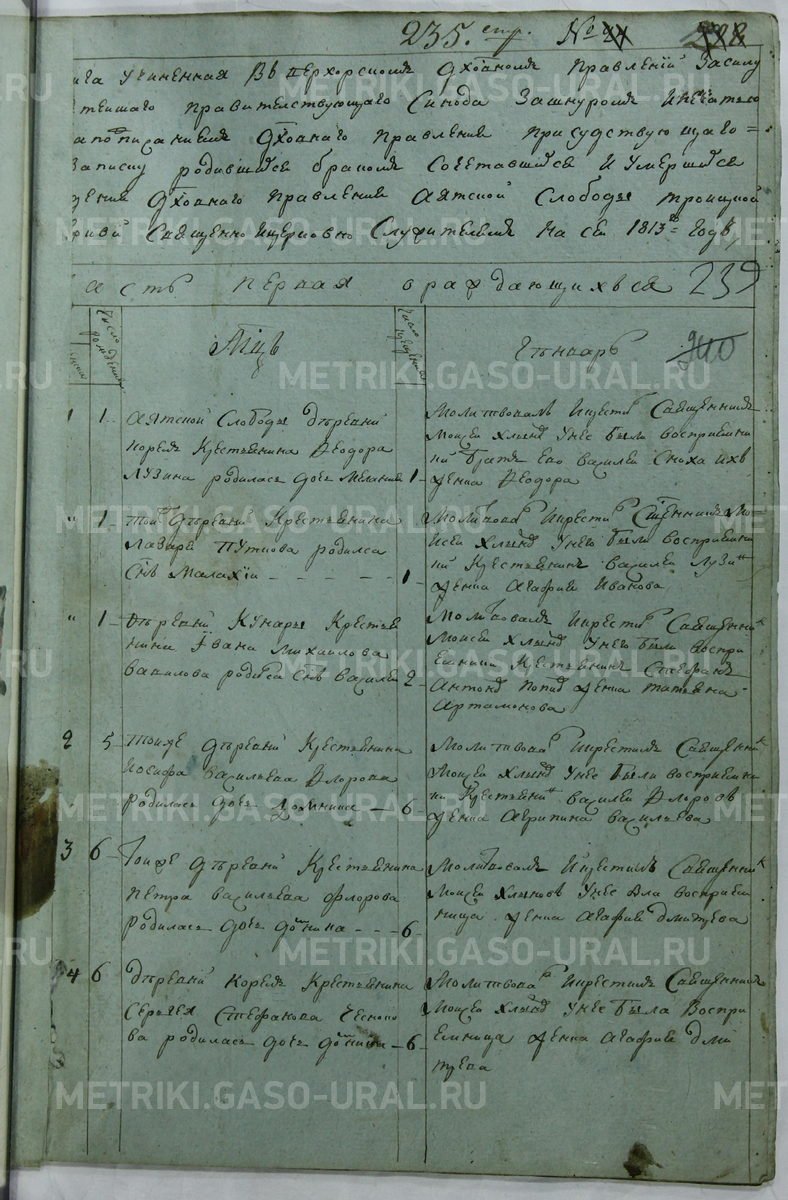 235. стр. №
ига учиненная въ Верхорскомъ Дховномъ Правленiи Засилу
правителствующаго Синода Зашнуромъ ипечатью
Дховнаго правления присудствующаго =
Записку родившихся бракомъ Сочетавшихся и Умершихся
Дховнаго правления Аятской Слободы троицкой
Священно ицерковно Служителемъ на сей 1813й Годъ,
асть первая о раждающихся 239
Число рожденiя
Мцъ
Число крещенiя
Генварь
240
1 1 Аятской Слободы дѣревни
Корелъ Крестьянина Феодора
Лузина родилась дочь Мелания 1
Молитвовалъ икрести Священникъ
Моисей Хлынов унее были восприемни
ки братъ Его Василей Сноха ихъ
Феодора
" 1 Той дѣревни Крестьянина
Лазаря Путкова родился
Снъ Малахiи - - - - - 1
Молитвова икрести Сщенникъ Мо
исей Хлынов унего были восприемни
ки Крестьянинъ василей Лузин
Агафия Иванова
" 1 Дѣревни Кунары Крестья
нина Ивана Михаилова
вавилова родился Снъ василей 2
Молитвовалъ икрести Священник
Моисей Хлынов унего были воспри
емники Крестьянинъ Стефанъ
татьяна
Артамонова
2 5 Тоиже дѣревни Крестьянина
Иосифа Васильева Флорова
родилась дочь Домника — 6
Молитвова икрестилъ Священник
Моисей Хлынов унее были восприемни
ки Крестьянин василей Флоровъ
Агрипина васильева
3 6 Тоиже дѣревни Крестьянина
Петра васильева флорова
родилась дочь - - - 6
Молитвовалъ икрестилъ Священник
Моисей Хлыновъ унее восприем
ница Агафия дмитрева
4 6 Дѣревни Корелъ Крестьянина
Сергея Стефанова Чесноко
ва родилась дочь — 6
Молитвова икрестилъ Священникъ
Моисей Хлынов унее была воспри
емница Агафия дми
трева
METRIKI.GASO-URAL.RU